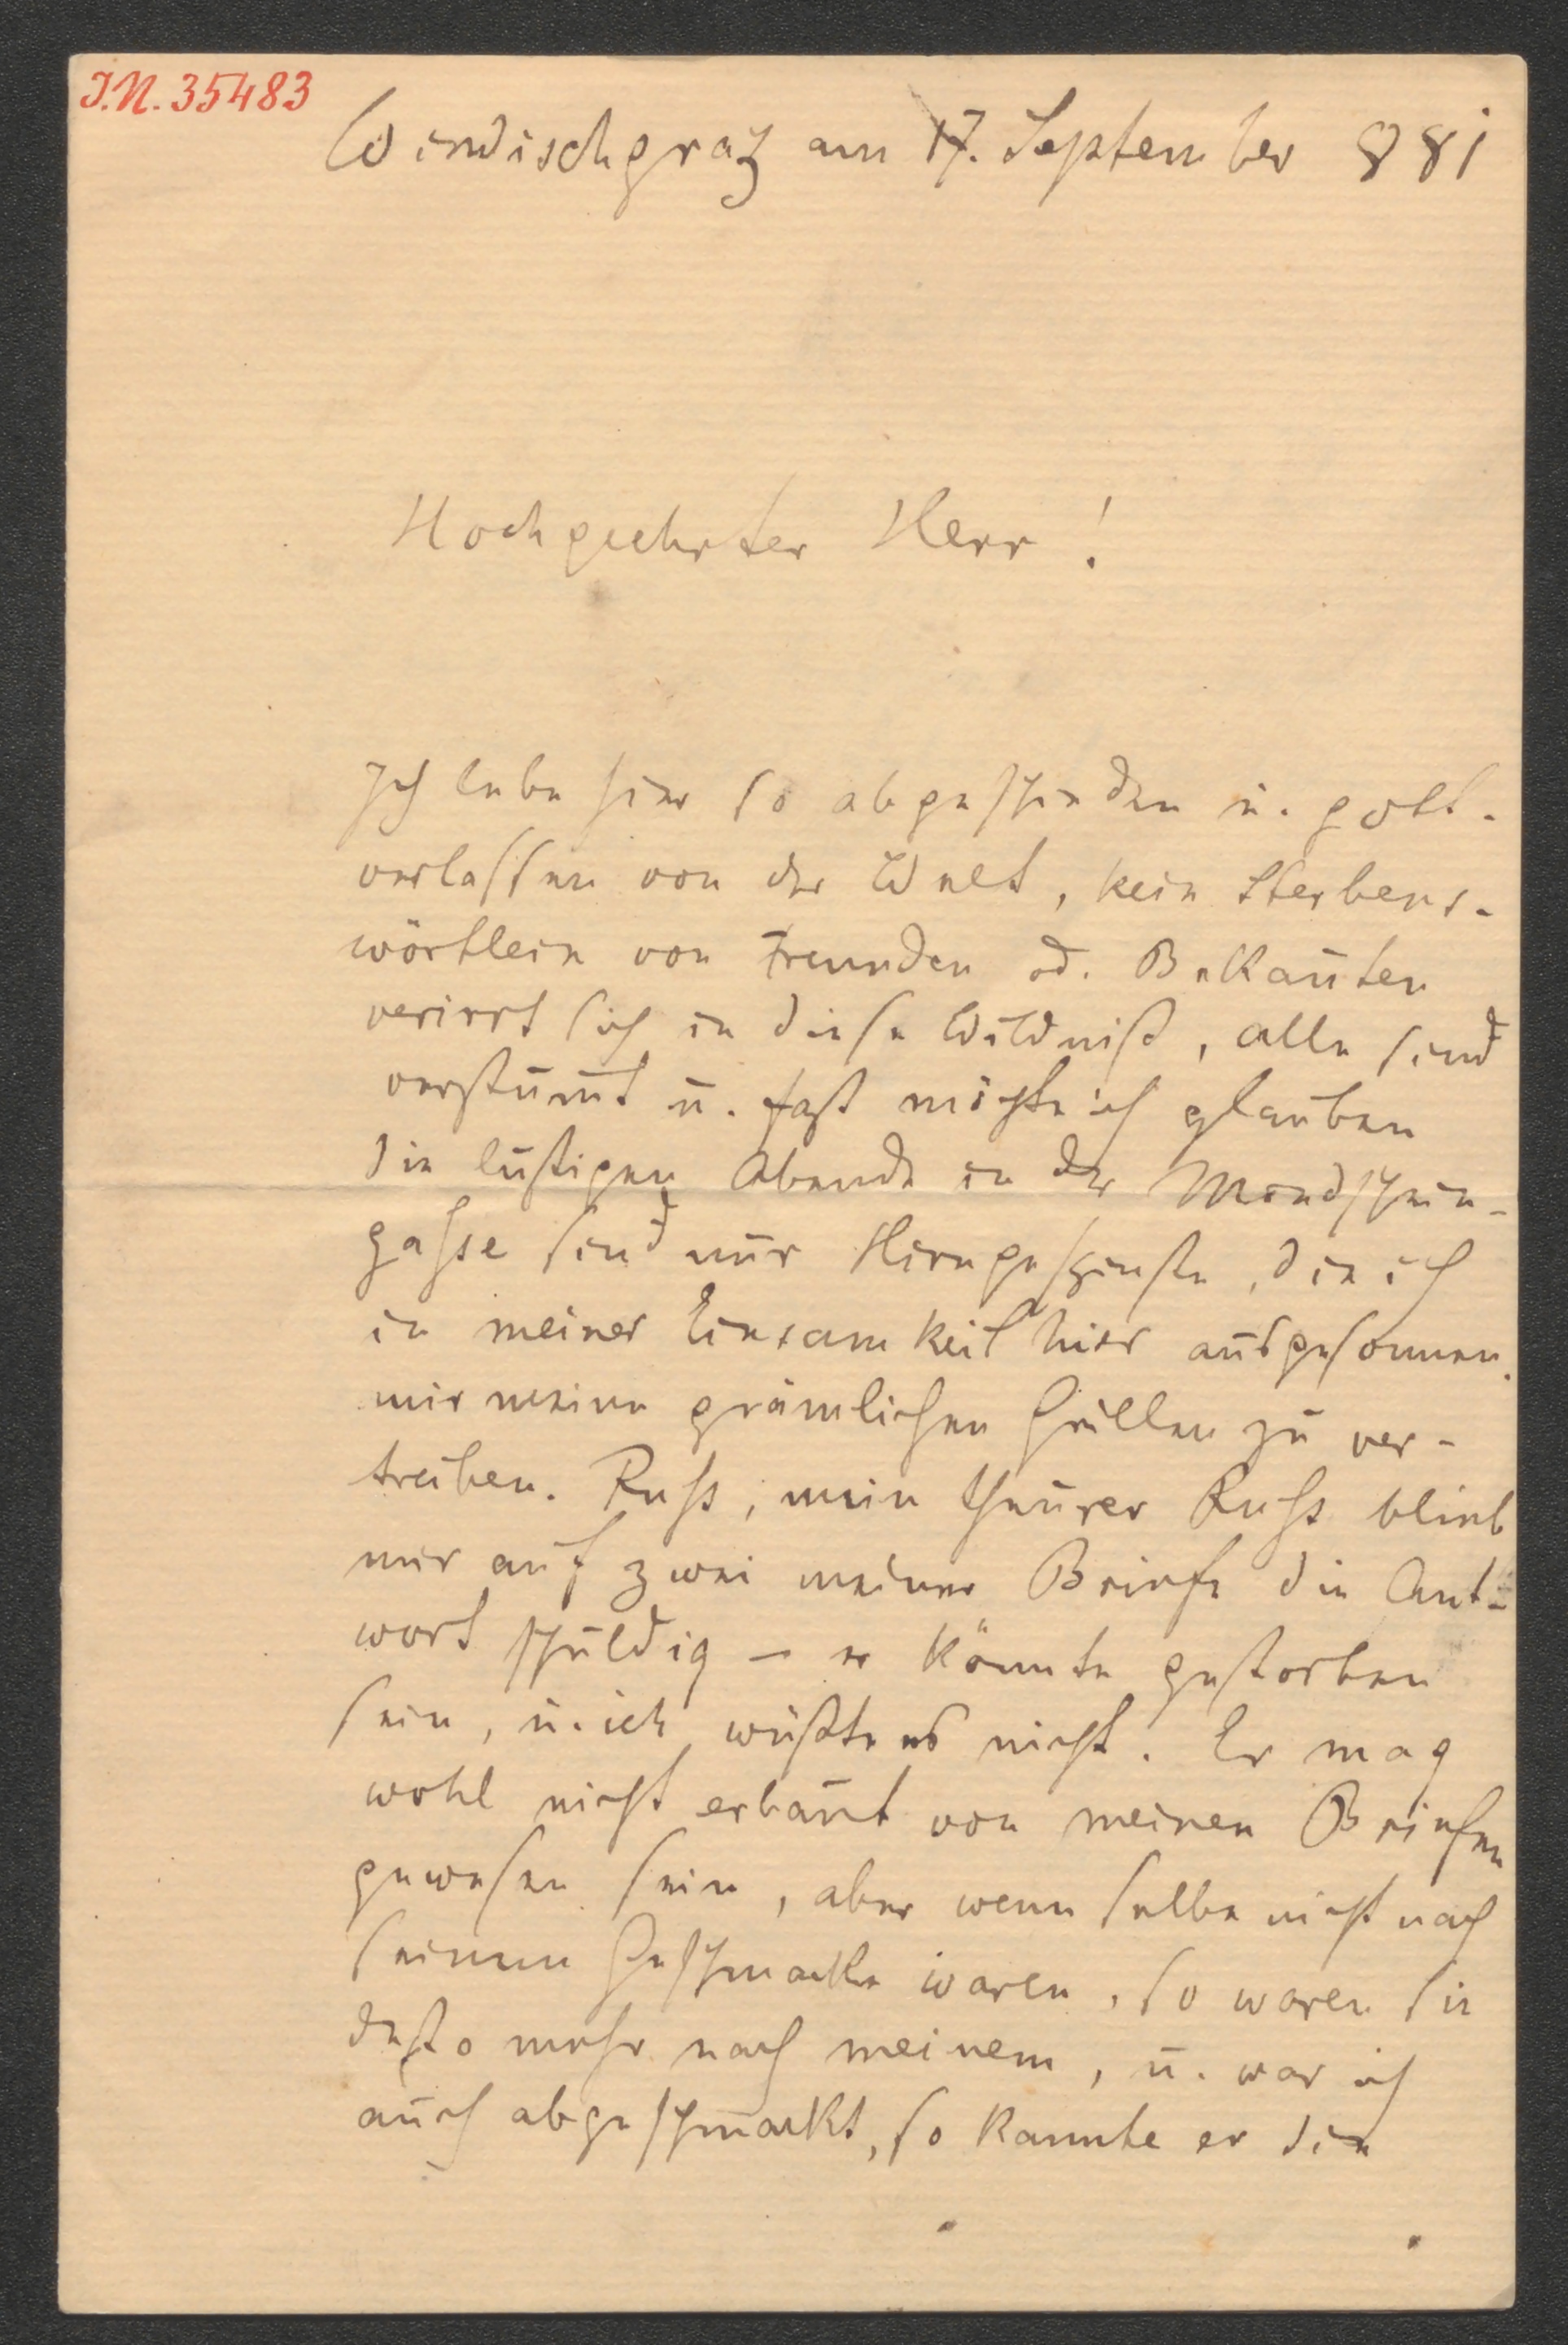 J.N. 35483
Windischgraz am 17. September 881
Hochgeehrter Herr!
Ich lebe hier so abgeschieden u. gott-
verlassen von der Welt, kein Sterbens-
wörtlein von Freunden od. Bekan̄ten
verirrt sich in diese Wildniß, alle sind
verstum̄t u. fast möchte ich glauben
die lustigen Abende in der Mondschein-
gasse sind nur Hirngespinste, die ich
in meiner Einsamkeit hier ausgesonnen,
mir meine grämlichen Grillen zu ver-
treiben. Russ, mein theurer Russ blieb
mir auf zwei meiner Briefe die Ant-
wort schuldig – er könnte gestorben
sein, u. ich wüßte es nicht. Er mag
wohl nicht erbaut von meinen Briefen
gewesen sein, aber wenn selbe nicht nach
seinem Geschmacke waren, so waren sie
desto mehr nach meinem, u. war ich
auch abgeschmackt, so kannte er die